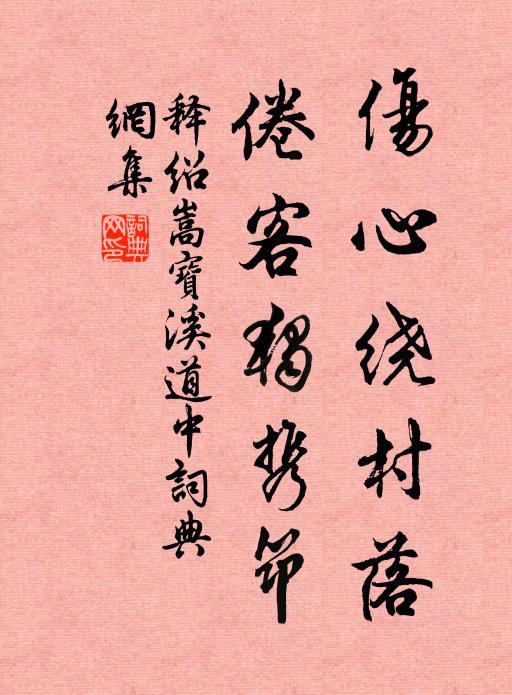 傷心绕村落
倦客獨携筇
释绍嵩寶溪道中詞典
網集
詞典网印